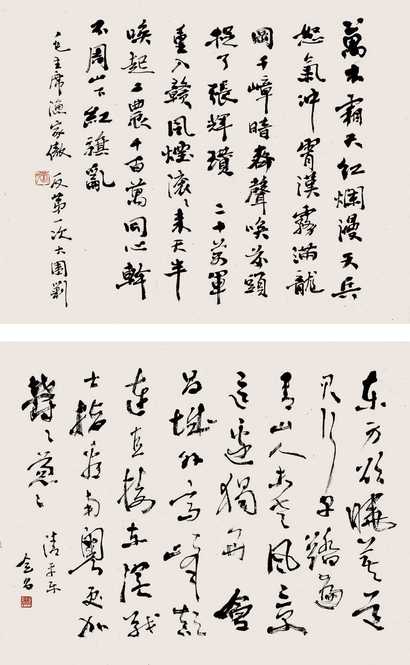 萬木霜天紅爛漫天兵
怒氣沖霄漢霧滿龍
岡千嶂暗齊聲喚前頭
捉了張輝瓚 二十萬軍
重入贛風煙滾〻來天半
喚起工農千百萬同心幹
不周山下紅旗亂
毛主席漁家傲 反第一次大圍剿
東方欲曉莫道
君行早踏遍
青山人未老風景
這邊獨好 會
昌城外高峰顛
連直接東溟戰
士指看南粵更加
鬱〻蔥〻
清平樂